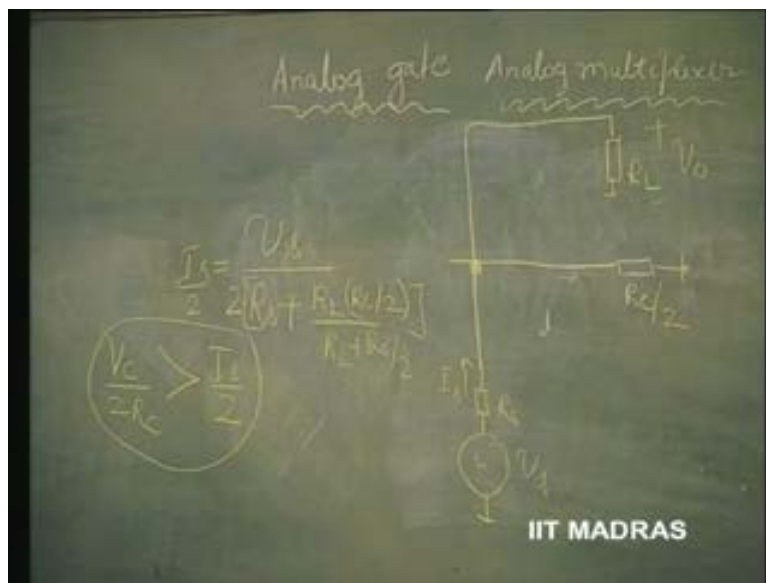 Analog gate Analog multiplexer
+
RL V0
Is/2 = Vs / 2[Rs + RL(Rc/2) / RL+Rc/2]
Rc/2
Vc/2Rc > Is/2
Is
Rs
Vs
IIT MADRAS